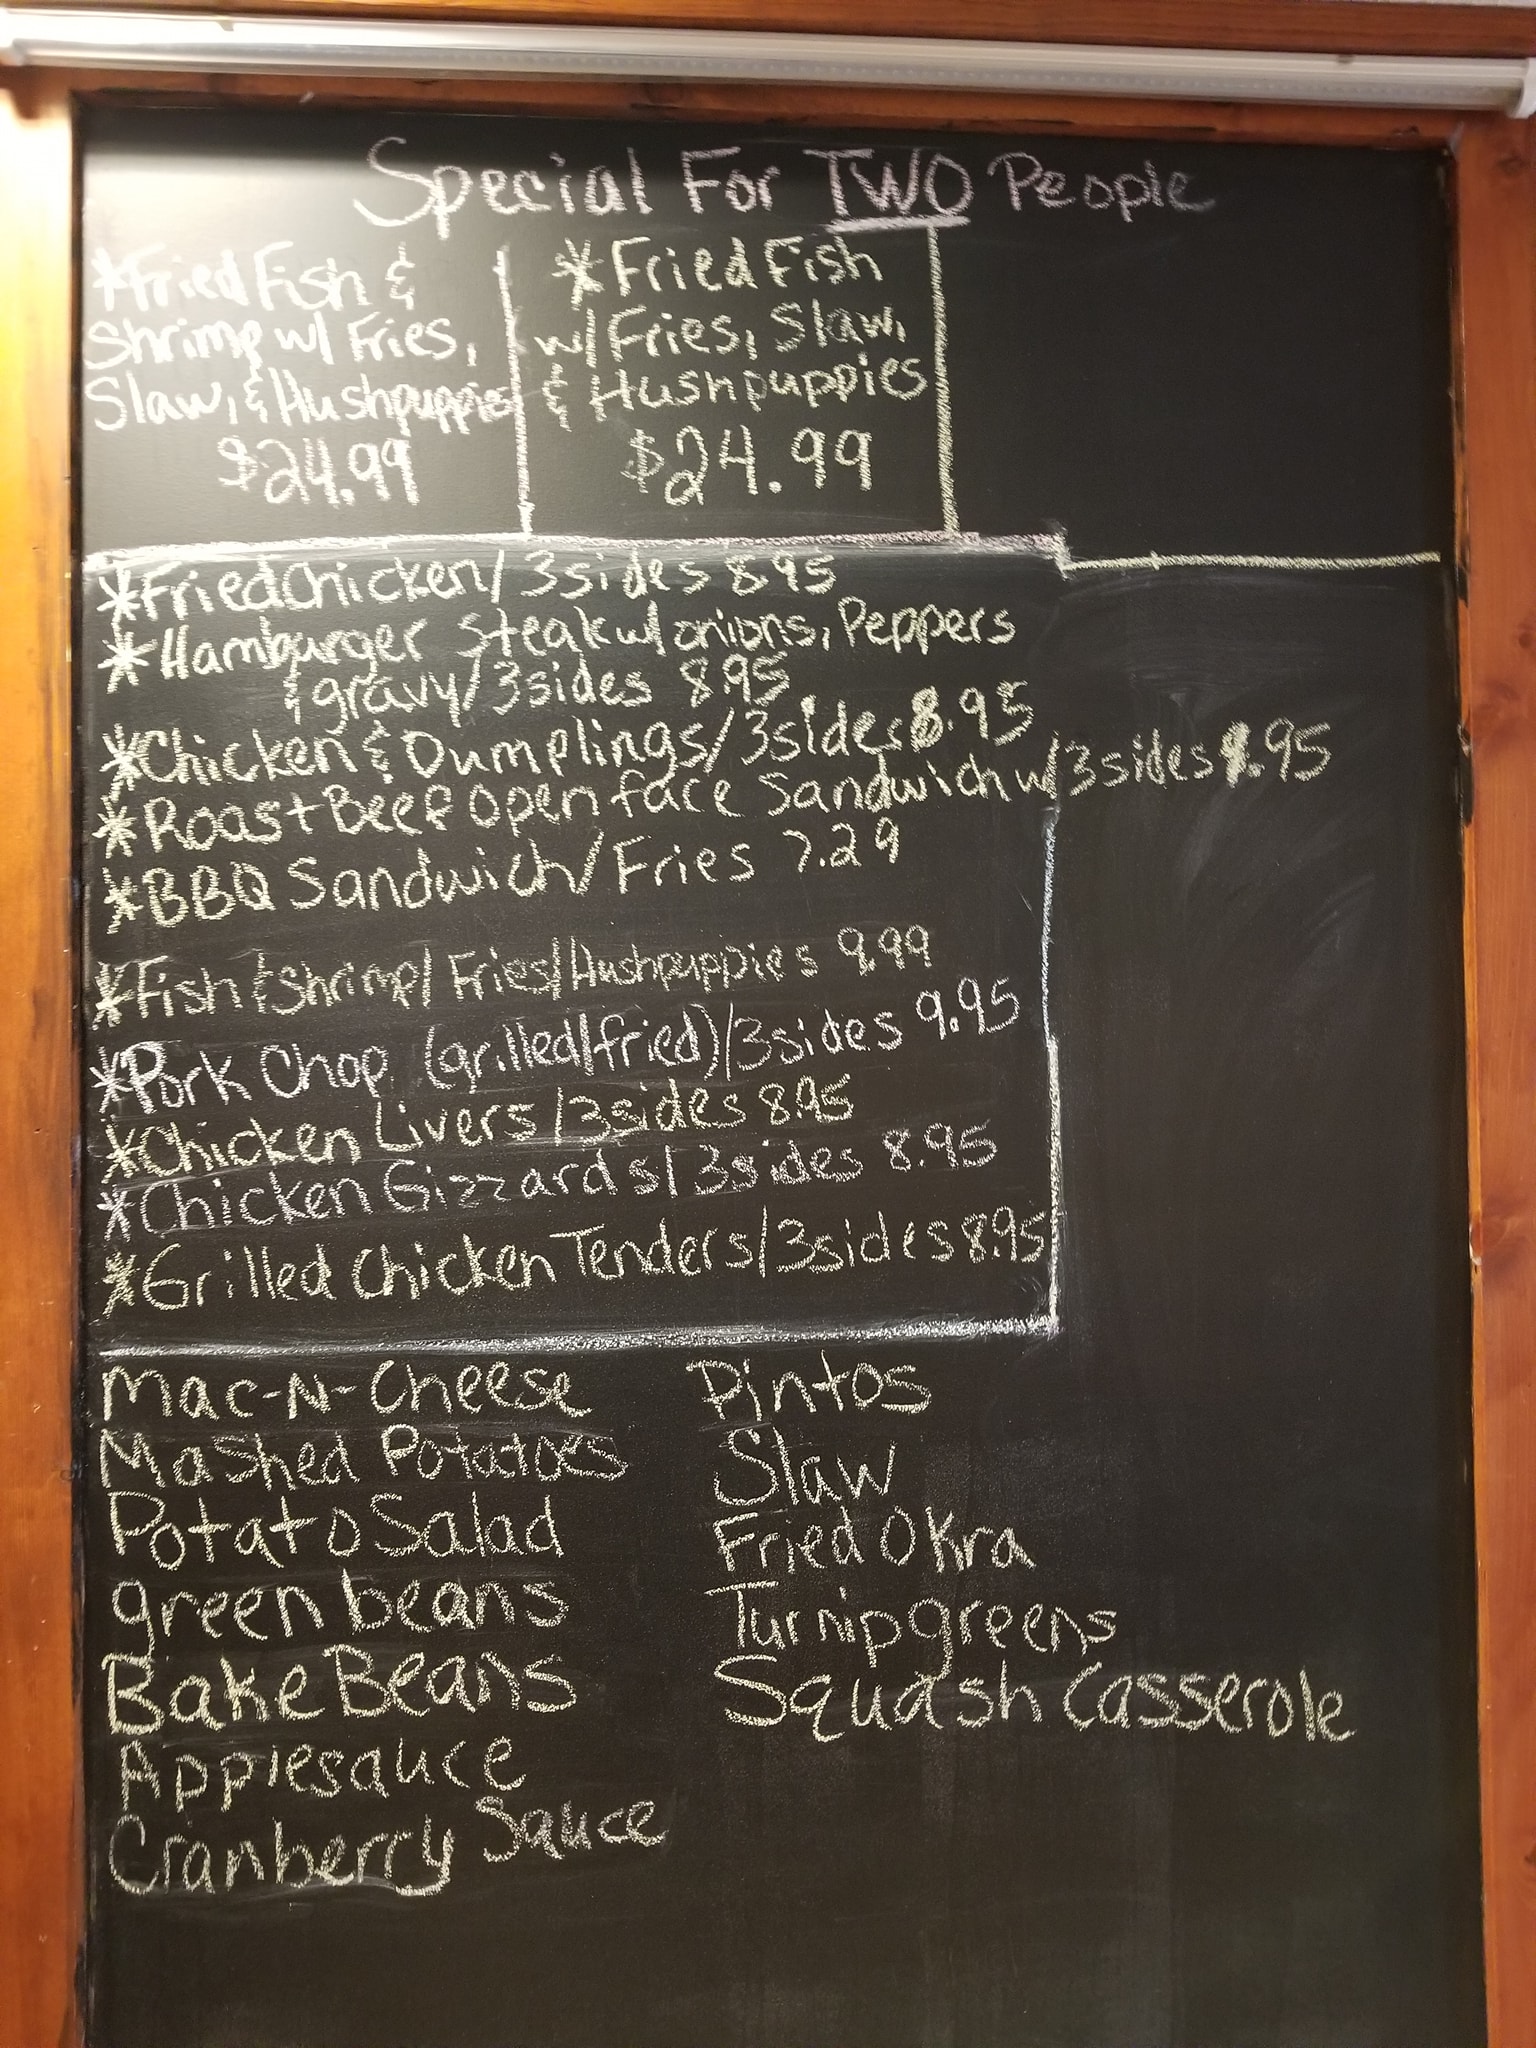 Special For TWO People
*Fried Fish &
Shrimp w/ Fries,
Slaw, & Hushpuppies
$24.99
*Fried Fish
w/ Fries, Slaw,
& Hushpuppies
$24.99
*Fried Chicken/ 3sides 8.95
*Hamburger Steak w/ onions, Peppers
& gravy/ 3sides 8.95
*Chicken & Dumplings/ 3sides 8.95
*Roast Beef Open face Sandwich w/ 3sides .95
*BBQ Sandwich/ Fries 7.29
*Fish & Shrimp/ Fries/ Hushpuppies 9.99
*Pork Chop (grilled/fried)/3sides 9.95
*Chicken Livers/3sides 8.95
*Chicken Gizzards/ 3sides 8.95
*Grilled Chicken Tenders/3sides 8.95
Mac-N-Cheese
Mashed Potatoes
Potato Salad
green beans
Bake Beans
Applesauce
Cranberry Sauce
Pintos
Slaw
Fried Okra
Turnip greens
Squash Casserole